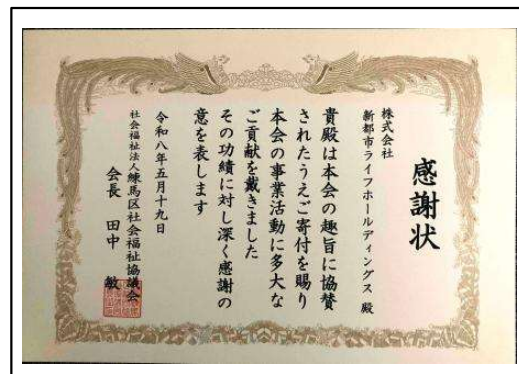 感謝状
株式会社
新都市ライフホールディングス 殿
貴殿は本会の趣旨に協賛
されたうえご寄付を賜り
本会の事業活動に多大な
ご貢献を戴きました
その功績に対し深く感謝の
意を表します
令和八年五月十九日
社会福祉法人練馬区社会福祉協議会
会長 田中 敏